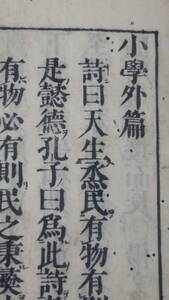 小學外篇
詩曰天生烝民有物有則
是懿德孔子曰爲此詩
有物必有則民之秉彝